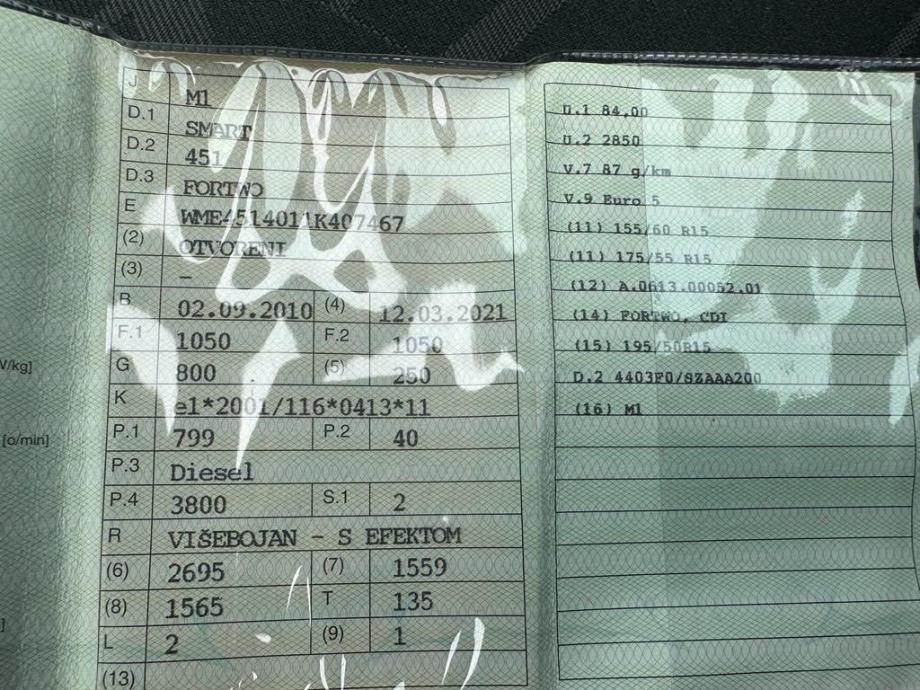 J M1
D.1 SMART
D.2 451
D.3 FORTWO
E WME4514011K407467
(2) OTVORENI
(3) –
B 02.09.2010 (4) 12.03.2021
F.1 1050 F.2 1050
G 800 (5) 250
K e1*2001/116*0413*11
P.1 799 P.2 40
P.3 Diesel
P.4 3800 S.1 2
R VIŠEBOJAN - S EFEKTOM
(6) 2695 (7) 1559
(8) 1565 T 135
L 2 (9) 1
(13)
/kg]
[o/min]
]
U.1 84,00
U.2 2850
V.7 87 g/km
V.9 Euro 5
(11) 155/60 R15
(11) 175/55 R15
(12) A.0613.00052.01
(14) FORTWO, CDI
(15) 195/50R15
D.2 4403F0/SZAAA200
(16) M1